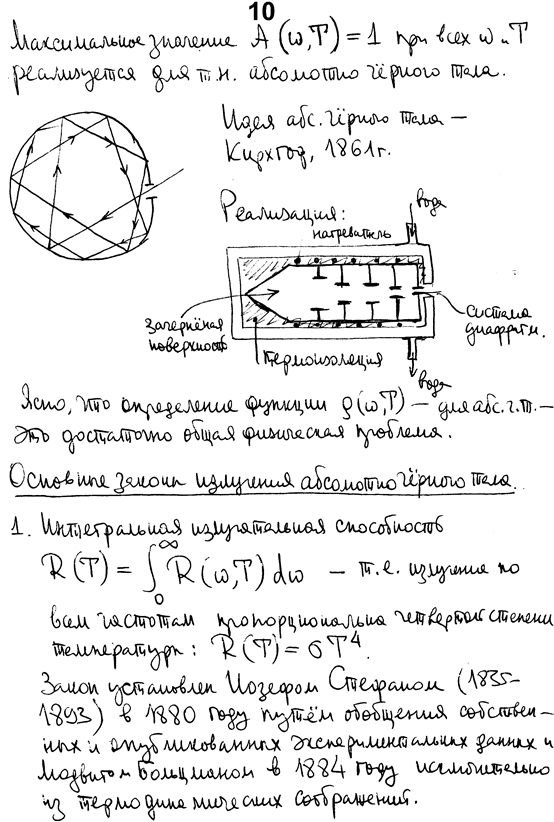 10
Максимальное значение A(ω,T) = 1 при всех ω и T
реализуется для т.н. абсолютно чёрного тела.
Идея абс. чёрного тела –
Кирхгоф, 1861г.
Реализация:
вода
нагреватель
зачернёная
поверхность
система
диафрагм.
термоизоляция
вода
Ясно, что определение функции ρ(ω,T) – для абс.ч.т. –
это достаточно общая физическая проблема.
Основные законы излучения абсолютно чёрного тела.
1. Интегральная излучательная способность
R(T) = ∫₀^∞ R(ω,T) dω – т.е. излучение по
всем частотам пропорциональна четвертой степени
температуры: R(T) = σT⁴.
Закон установлен Иозефом Стефаном (1835-
1893) в 1880 году путём обобщения собствен-
ных и опубликованных экспериментальных данных и
Людвигом Больцманом в 1884 году исключительно
из термодинамических соображений.